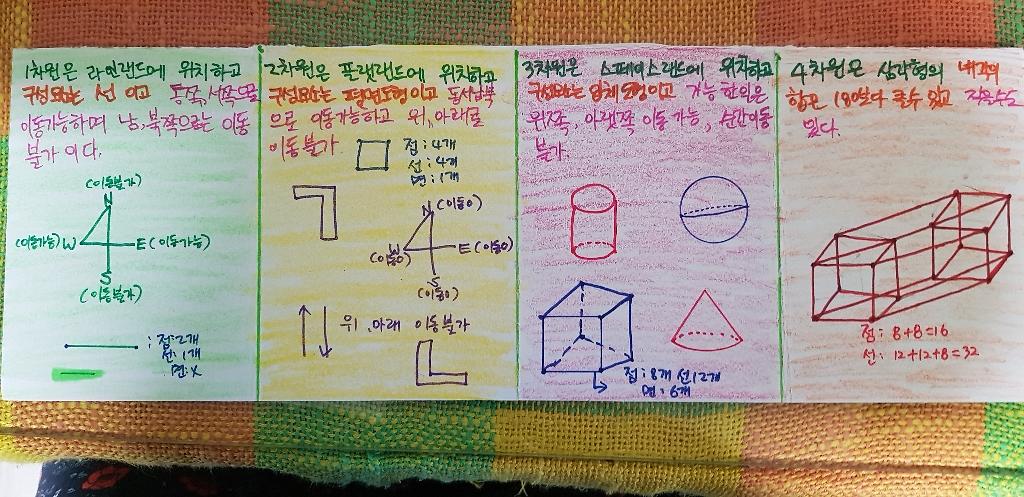 1차원은 라인랜드에 위치하고
구성요소는 선 이고 동쪽, 서쪽으로
이동가능하며 남, 북쪽으로는 이동
불가 이다.
(이동불가)
N
(이동가능) W E (이동가능)
S
(이동불가)
: 점: 2개
선: 1개
면: X
2차원은 플랫랜드에 위치하고
구성요소는 평면도형이고 동서남북
으로 이동가능하고 위, 아래로
이동 불가
점: 4개
선: 4개
면: 1개
N (이동O)
W E (이동O)
(이동O)
S
(이동O)
위, 아래 이동불가
3차원은 스페이스랜드에 위치하고
구성요소는 입체도형이고 가능한일은
위쪽, 아랫쪽 이동 가능, 순간이동
불가.
점: 8개 선12개
면: 6개
4차원은 삼각형의 내각의
합은 180보다 클수 있고 작을수도
있다.
점: 8+8=16
선: 12+12+8=32